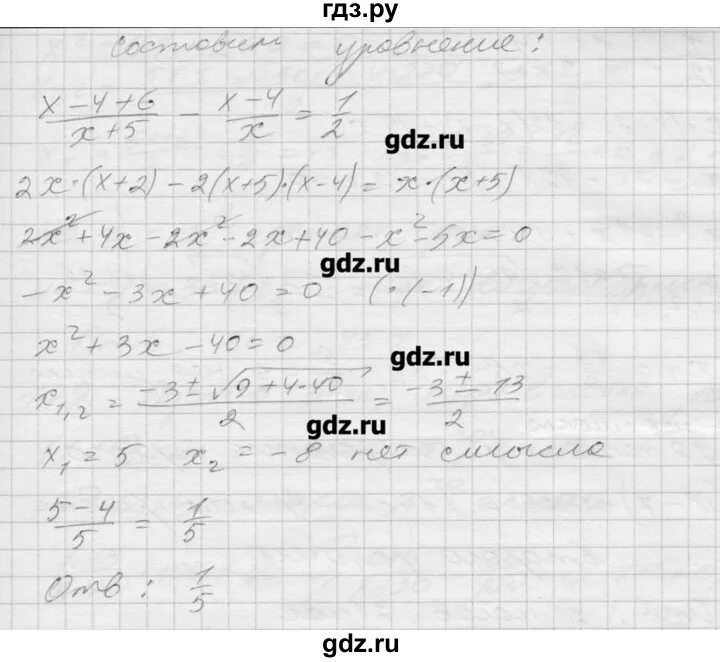 гдз.ру
составим уровнение:
(x-4+6)/(x+5) - (x-4)/x = 1/2
gdz.ru
2x·(x+2) - 2(x+5)·(x-4) = x·(x+5)
2x² + 4x - 2x² - 2x + 40 - x² - 5x = 0
gdz.ru
-x² - 3x + 40 = 0 (·(-1))
x² + 3x - 40 = 0
gdz.ru
x₁,₂ = (-3 ± √(9+4·40))/2 = (-3 ± 13)/2
gdz.ru
x₁ = 5 x₂ = -8 нет смысла
(5-4)/5 = 1/5
Отв: 1/5
gdz.ru